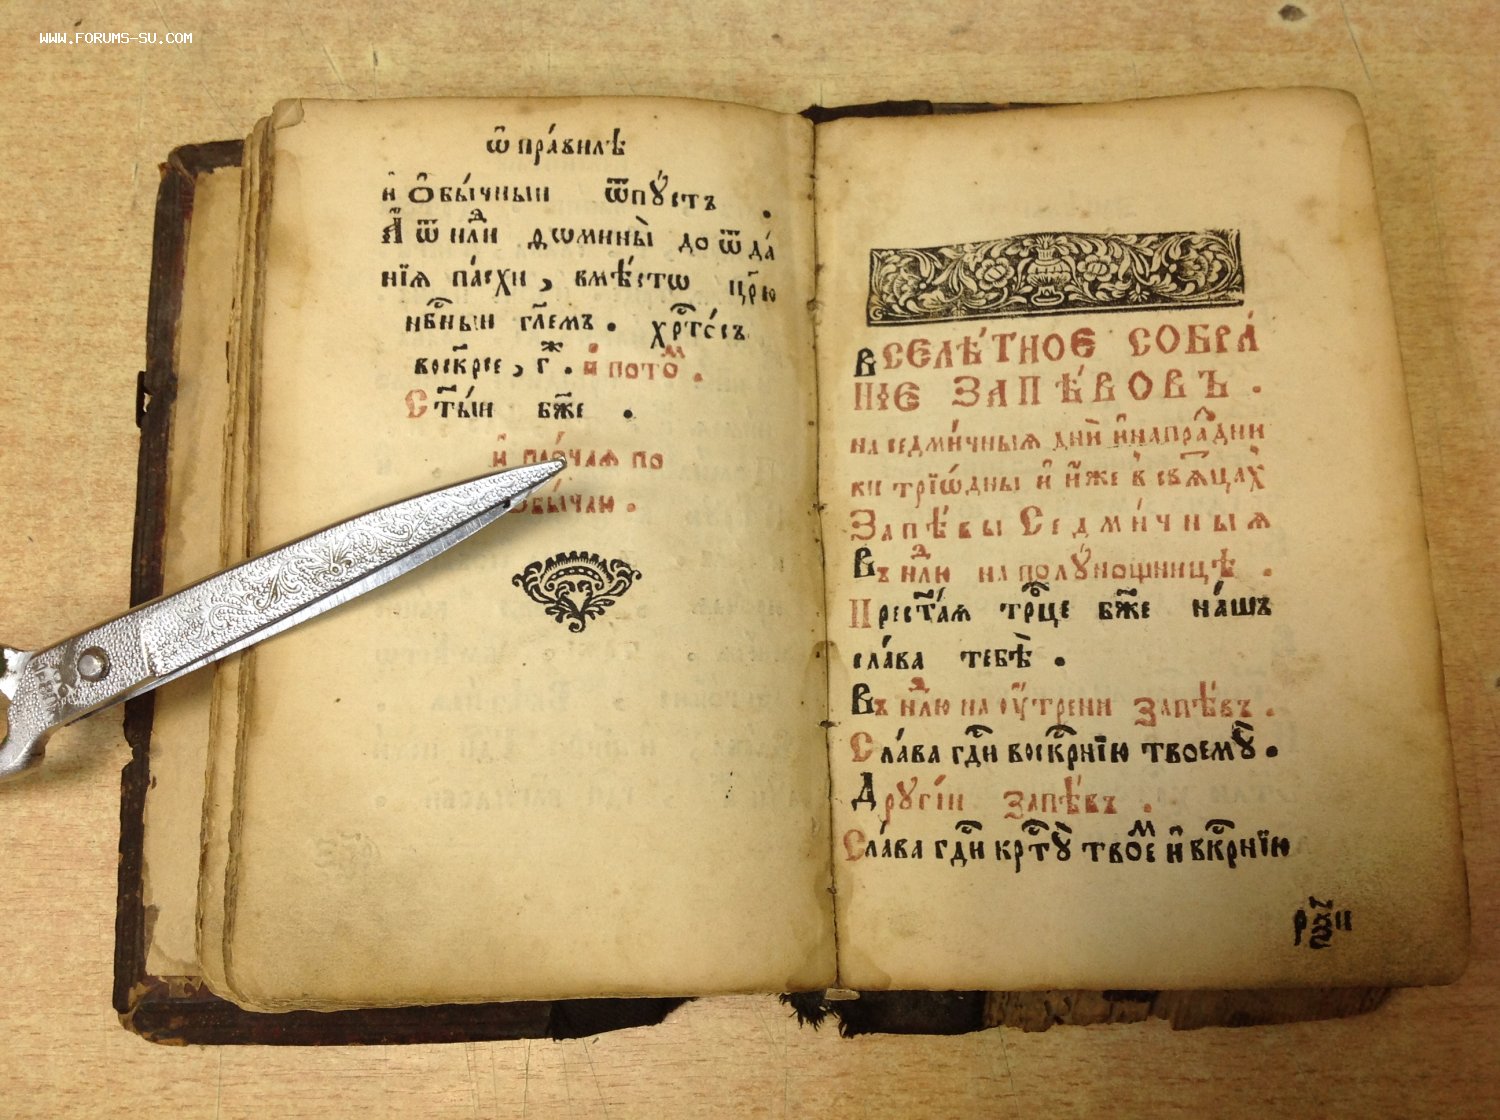 WWW.FORUMS-SU.COM
ѡ҆ пра́вилѣ
и҆ ѻ҆бы́чный ѿпꙋ́стъ .
А҆ ѿ нⷣли ѳомины̀ до ѿда́
нїѧ па́схи , вмѣ́стѡ цр҃ю
нбⷭ҇ныи гл҃емъ . хрⷭ҇то́съ
воскр҃се , г҃ⷤ . и҆ пото́ⷨ .
Ст҃ы́и бж҃е .
и҆ про́чаѧ по
ѻ҆бы́чаю .
ВСЕЛѢ́ТНОЕ СОБРА́
НІЕ ЗАПѢ́ВОВЪ .
на седми́чныѧ дни̑ и҆ на пра́ⷥдни
ки трїѡ́дны и҆ и҆́же в̾ свѧ́тцахъ
Запѣ́вы Седми́чныѧ
Въ нⷣлю на полꙋ́нощницѣ .
Прест҃а́ѧ трⷪ҇це бж҃е на́шъ
сла́ва тебѣ̀ .
Въ нⷣлю на оу҆́трени запѣ́въ .
Сла́ва гдⷭ҇и воскрⷭ҇нїю твоемꙋ̀ .
Дрꙋгі́и запѣ́въ .
Сла́ва гдⷭ҇и крⷭ҇тꙋ̀ твоеⷨ и҆ вкрⷭ҇нїю